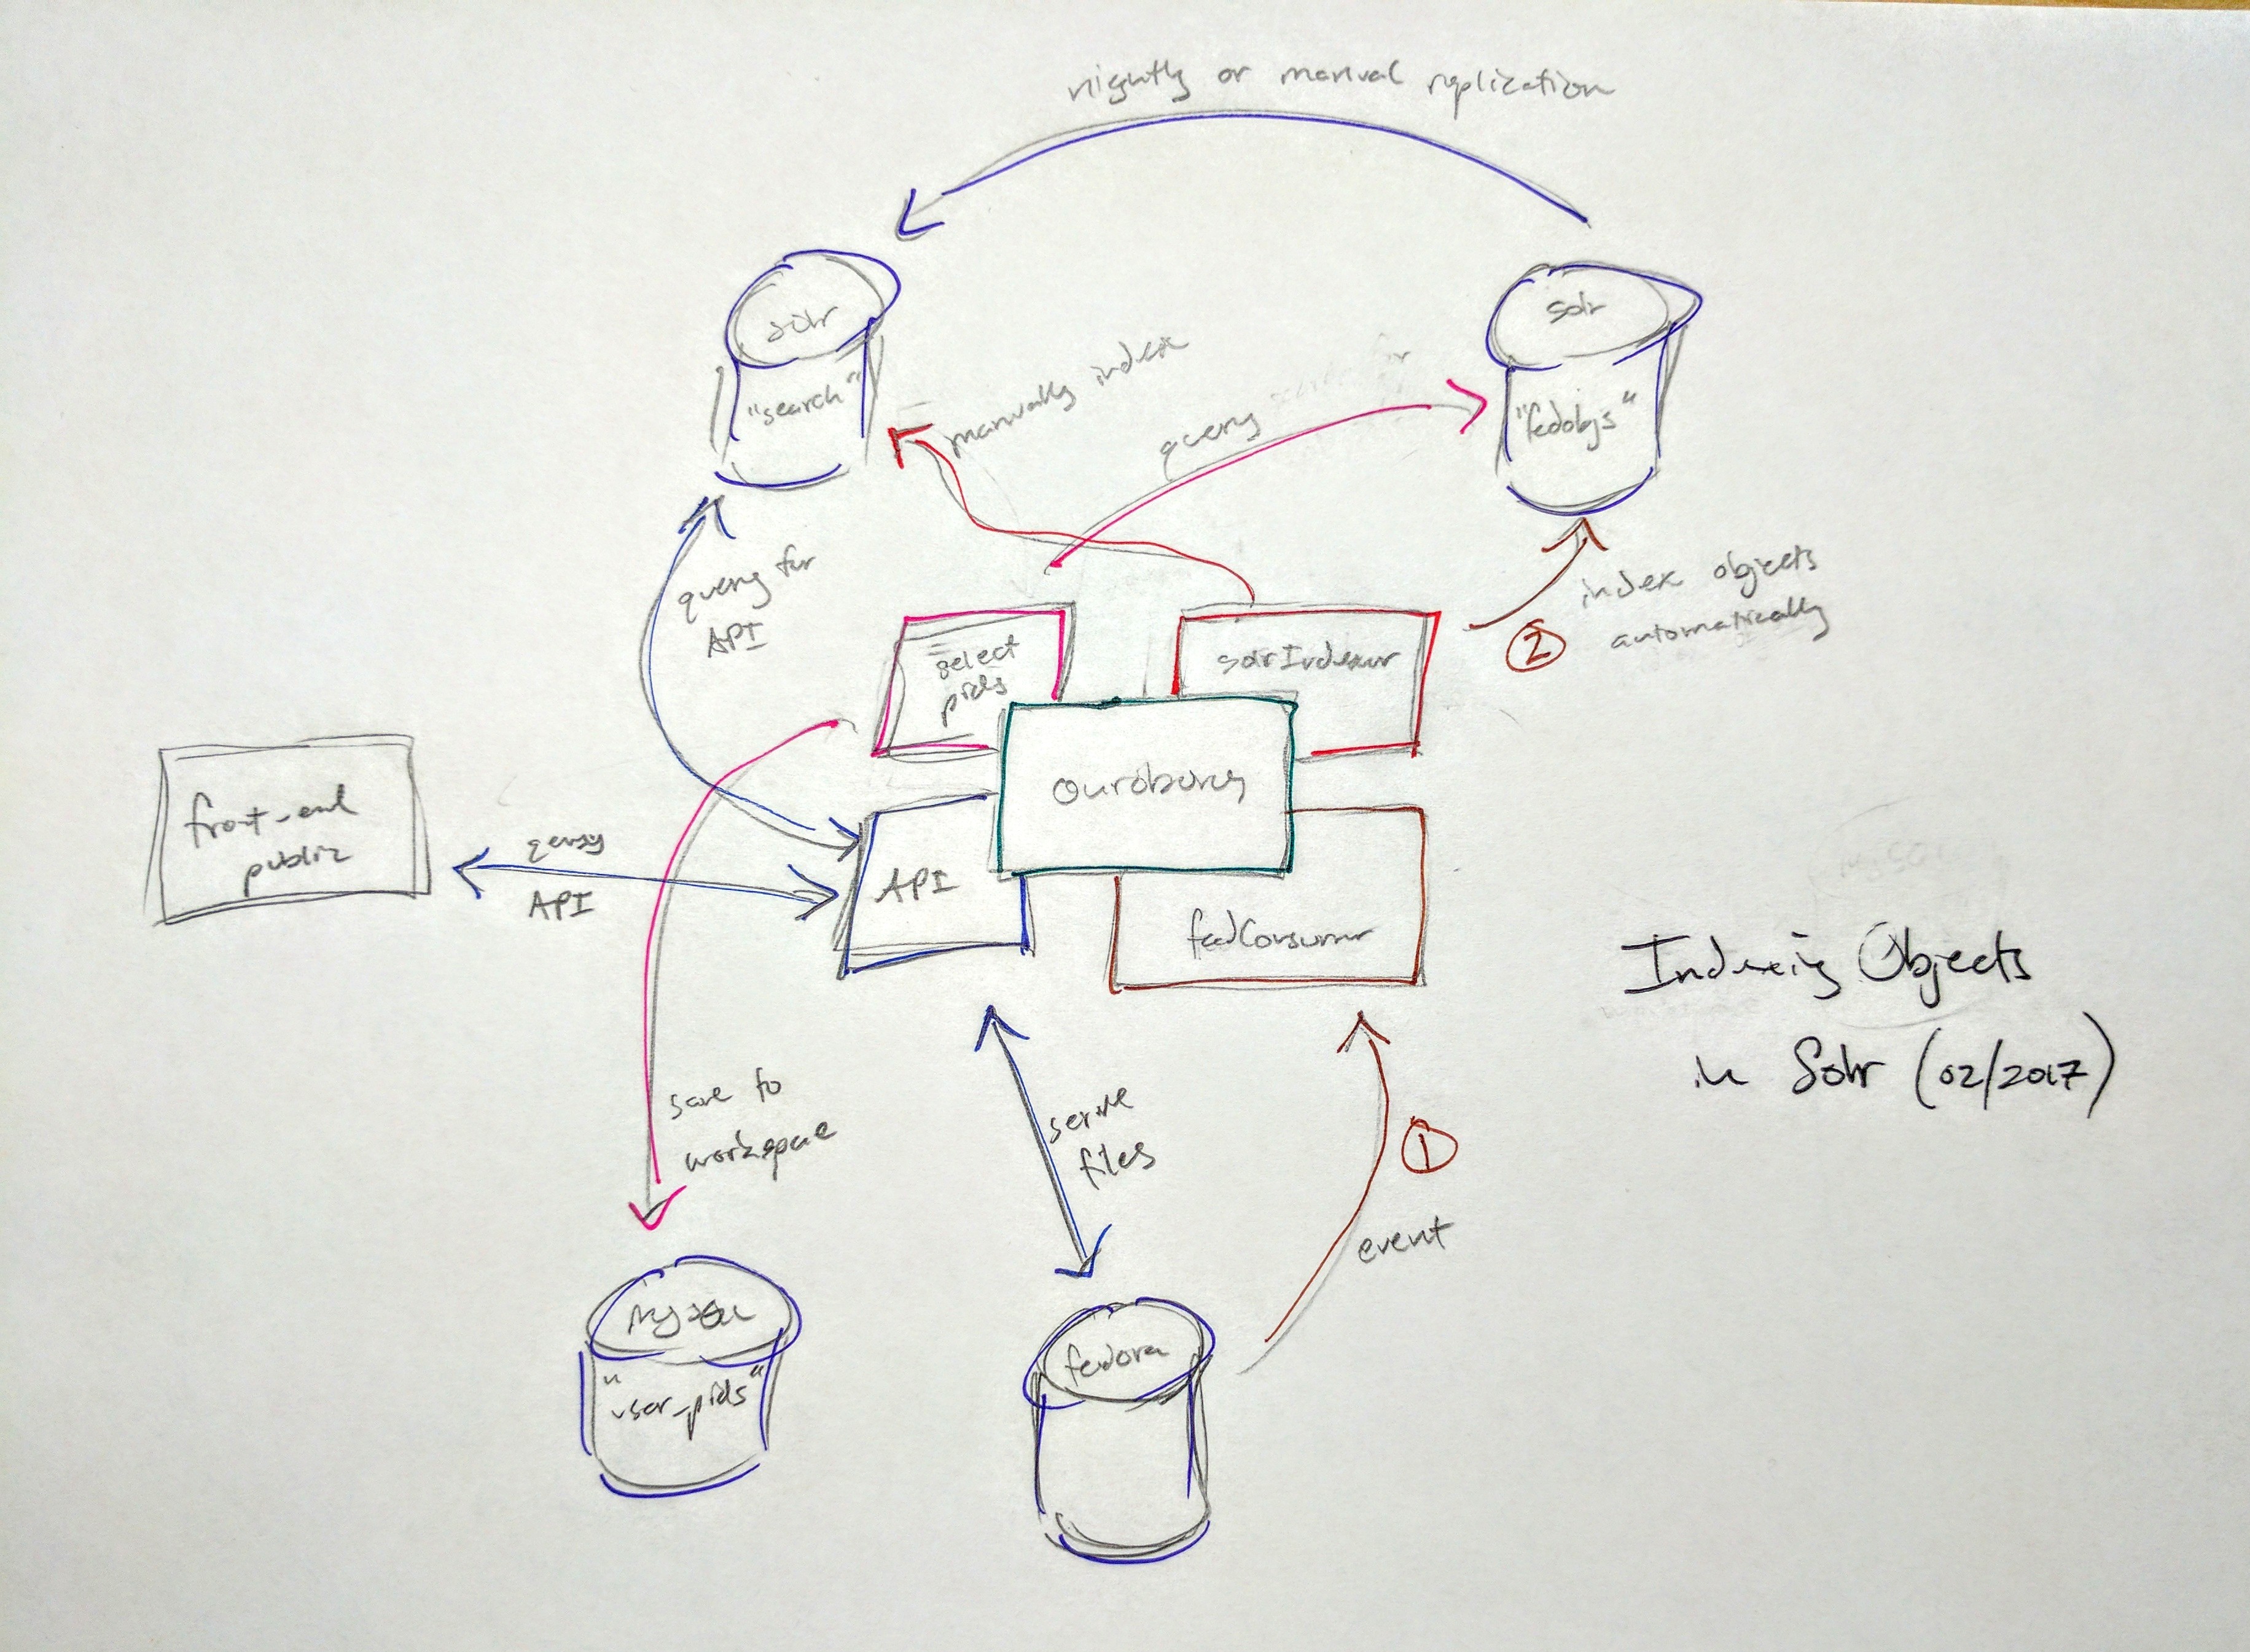 nightly or manual replication
solr
"search"
solr
"fedobjs"
manually index
query
query for
API
index objects
automatically
2
select
pids
solrIndexer
Ouroboros
front-end
public
query
API
API
fedConsumer
Indexing Objects
in Solr (02/2017)
save to
workspace
serve
files
1
event
MySQL
"user_pids"
fedora